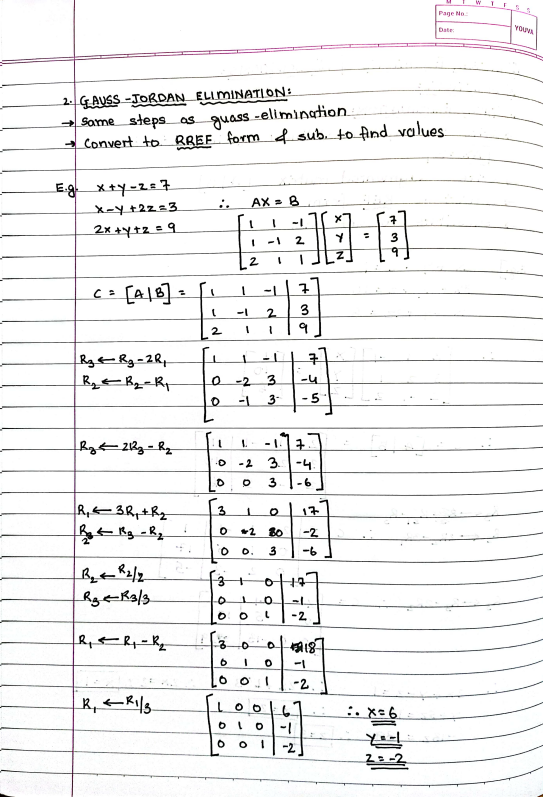 M T W T F S S
Page No.:
Date:
YOUVA
2. GAUSS-JORDAN ELIMINATION:
→ same steps as guass-elimination
→ convert to RREF form & sub. to find values
E.g. x+y-z=7
x-y+2z=3
2x+y+z=9
∴ AX = B
[1 1 -1] [x] = [7]
[1 -1 2] [y] [3]
[2 1 1] [z] [9]
C = [A|B] = [1 1 -1 | 7]
[1 -1 2 | 3]
[2 1 1 | 9]
R₃ ← R₃-2R₁ [1 1 -1 | 7]
R₂ ← R₂-R₁ [0 -2 3 | -4]
[0 -1 3 | -5]
R₃ ← 2R₃ - R₂ [1 1 -1 | 7]
[0 -2 3 | -4]
[0 0 3 | -6]
R₁ ← 3R₁+R₂ [3 1 0 | 17]
R₂ ← R₃ - R₂ [0 2 0 | -2]
[0 0 3 | -6]
R₂ ← R₂/2 [3 1 0 | 17]
R₃ ← R₃/3 [0 1 0 | -1]
[0 0 1 | -2]
R₁ ← R₁ - R₂ [3 0 0 | 18]
[0 1 0 | -1]
[0 0 1 | -2]
R₁ ← R₁/3 [1 0 0 | 6]
[0 1 0 | -1]
[0 0 1 | -2]
∴ x=6
y=-1
z=-2